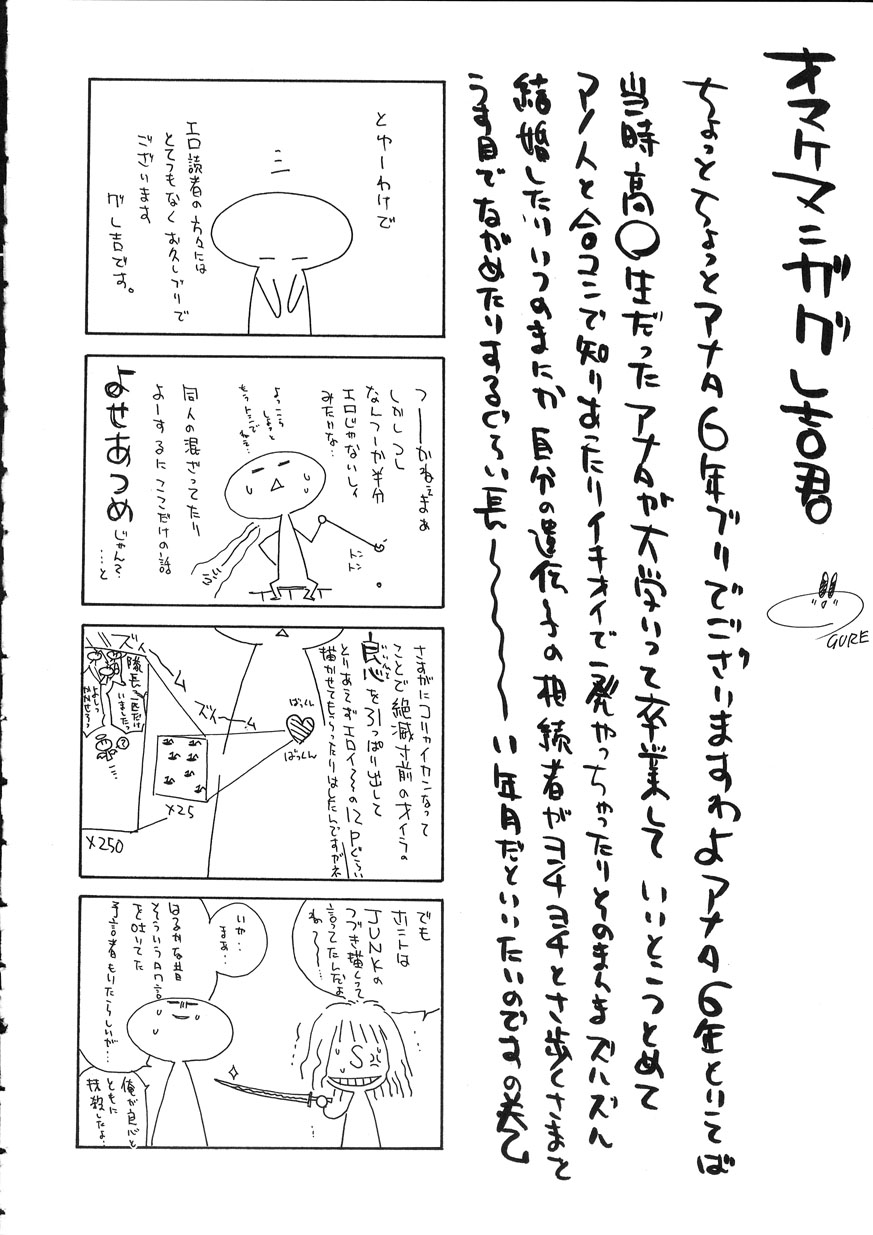 オマケマニガグレ吉君
GURE
ちょっとちょっとアナタ6年ブリでございますわよアナタ6年といてば
当時高〇生だったアナタが大学いって卒業していいとこつとめて
アノ人と合コンで知りあったりイキオイで一発やっちゃったりそのまんまズルズル
結婚したりいつのまにか自分の遺伝子の相続者がヨチヨチとさ歩くさまを
うす目でながめたりするぐらい長〜い年月だといいたいのですの巻
とゆーわけで
エロ読者の方々には
とてつもなくお久しブリで
ございます
グレ吉です。
つーかねぇまぁ
しかしつし
なんつーか半分
エロじゃないしィ
みたいな…
よっこら
しょっと
トン
トン
同人の混ざってたり
よーするにここだけの話
よせあつめ
じゃん?
…と
さすがにコリャイカンなって
ことで絶滅寸前のオイラの
良心を引っぱり出して
とりあえずエロイ〜の12Pぐらい
描かせてもらったりはしたんですがネ
ばっくん
ばっくん
ズィーーム
ズィーーム
×25
×250
隊長一匹だけ
いましたっ
でも
ホントは
JUNKの
つづき描くって
言ってたんだよ
ね〜〜…
S
いや‥
まぁ‥
はるかな昔
そういうタワ言
を吐いてた
予言者もいたらしいが…
俺が良心と
ともに
抹殺したよ‥